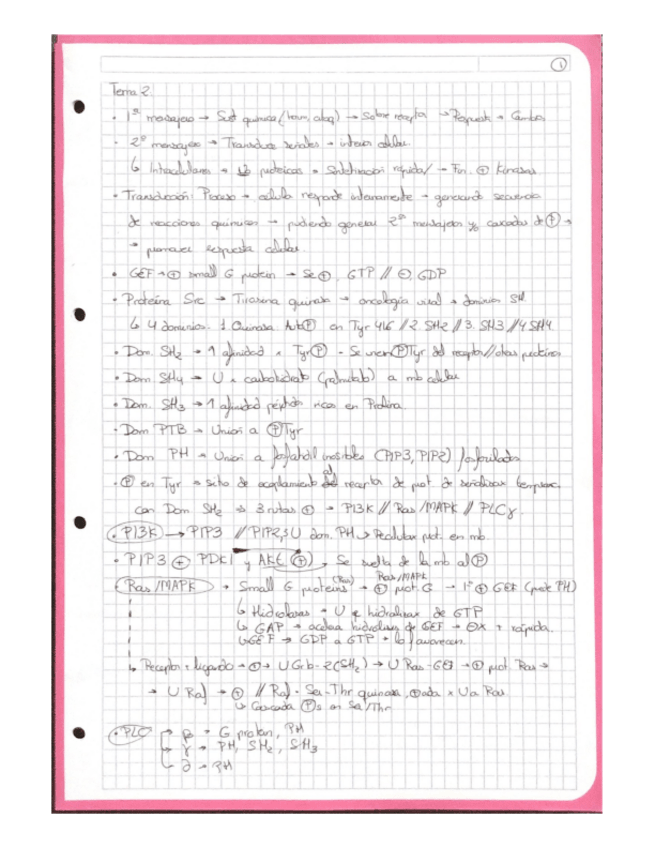 1
Tema 2.
· 1er mensajero → Sust química (horm, alag) → Sobre receptor → Respuesta → Cambios
· 2º mensajero → Transducir señales → interior celular.
↳ Intracelulares → no proteicos → Sintetización rápida/ → Fin. ⊕ Kinasas
· Transducción: Proceso → célula responde internamente → generando secuencia
de reacciones químicas → pudiendo generar 2os mensajeros y/o cascadas de Ⓟ →
→ promover respuesta celular.
· GEF → ⊕ small G protein → Se ⊕, GTP // ⊖, GDP
· Proteína Src → Tirosina quinasa → oncología viral → dominios SH.
↳ 4 dominios. 1 Quinasa AutoⓅ en Tyr 416 // 2. SH2 // 3. SH3 // 4 SH4.
· Dom. SH2 → ↑ afinidad x TyrⓅ - Se unen ⓅTyr del receptor // otras proteínas
· Dom SH4 → U x carbohidrato (palmitato) a mb celular
· Dom. SH3 → ↑ afinidad péptidos ricos en Prolina
· Dom PTB → Unión a ⓅTyr
· Dom PH → Unión a fosfatidil inositoles (PIP3, PIP2) fosforilados
· Ⓟ en Tyr → sitio de acoplamiento al receptor de prot de señalización temprana
con Dom SH2 → 3 rutas ⊕ → PI3K // Ras/MAPK // PLCγ.
· PI3K → PIP3 // PIP2, U dom. PH → Reclutar prot. en mb.
· PIP3 ⊕ PDK1 y AKt (⊕), Se suelta de la mb al Ⓟ
Ras/MAPK → Small G proteins (Ras) → ⊕ prot G → 1º ⊕ GEF (prot PH)
Ras/MAPK
↳ Hidrolasas → U e hidrolizar de GTP
↳ GAP → acelera hidrólisis de GEF → ⊖x + rápida.
↳ GEF → GDP a GTP → lo favorecen.
↳ Receptor + ligando → ⊕ → U Grb-2(SH2) → U Ras-GEF → ⊕ prot. Ras →
→ U Raf → ⊕ // Raf - Ser-Thr quinasa, ⊕ada x U a Ras
↳ Cascada Ⓟs en Ser/Thr
· PLC → β → G protein, PH
→ γ → PH, SH2, SH3
→ ∂ → PH